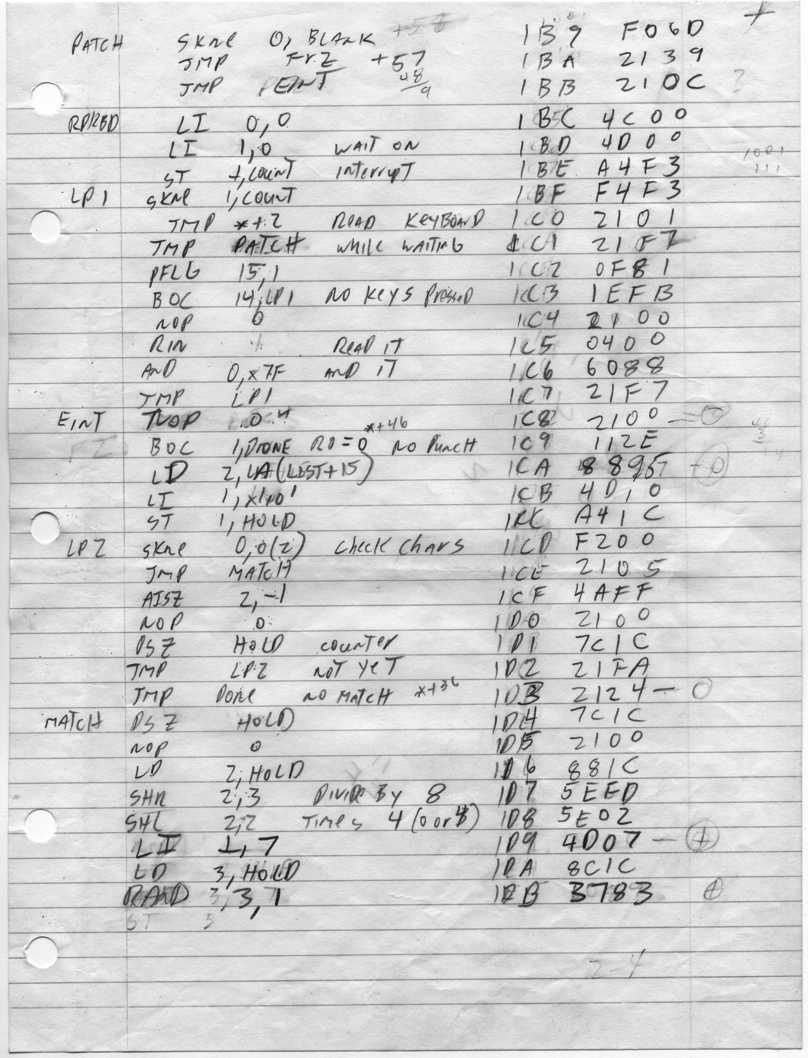 PATCH SKNE 0, BLANK 1B9 F06D
JMP +57 1BA 2139
JMP EINT 48/9 1BB 210C ?
LI 0,0 1BC 4C00
LI 1,0 WAIT ON 1BD 4D00
ST 1,COUNT Interrupt 1BE A4F3
LP1 SKNE 1,COUNT 1BF F4F3
JMP *+2 READ KEYBOARD 1C0 2101
JMP PATCH while WAITING 1C1 21F7
PFLG 15,1 1C2 0F81
BOC 14,LP1 NO KEYS Pressed 1C3 1EFB
NOP 0 1C4 2100
RIN READ IT 1C5 0400
AND 0,X7F AND IT 1C6 6088
JMP LP1 1C7 21F7
EINT NOP 0 1C8 2100 - 0
BOC 1,DONE R0=0 *+46 NO Punch 1C9 112E
LD 2,LA(LIST+15) 1CA 8895 - 0
LI 1,X'10' 1CB 4D10
ST 1,HOLD 1CC A41C
LP2 SKNE 0,0(2) check chars 1CD F200
JMP MATCH 1CE 2105
AISZ 2,-1 1CF 4AFF
NOP 0 1D0 2100
DSZ HOLD counter 1D1 7C1C
JMP LP2 NOT YET 1D2 21FA
JMP DONE NO MATCH *+36 1D3 2124 - 0
MATCH DSZ HOLD 1D4 7C1C
NOP 0 1D5 2100
LD 2,HOLD 1D6 881C
SHR 2,3 DIVIDE BY 8 1D7 5EED
SHL 2,2 TIMES 4 (0 or 4) 1D8 5E02
LI 1,7 1D9 4D07 - +
LD 3,HOLD 1DA 8C1C
RAND 3,3,1 1DB 3783 +
ST 3
2-4